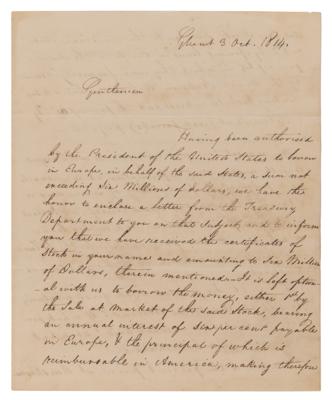 Ghent 3 Oct. 1814.
Gentlemen
Having been authorised
by the President of the United States to borrow
in Europe, in behalf of the said States, a Sum not
exceeding Six Millions of dollars, we have the
honor to enclose a letter from the Treasury
Department to you on that Subject, and to inform
you that we have received the certificates of
Stock in your names and amounting to Six Millions
of Dollars, therein mentioned. It is left option
al with us to borrow the money, either 1st by
the Sale at market of the said Stock, bearing
an annual interest of Six per cent payable
in Europe, & the principal of which is
reimbursable in America, making therefore